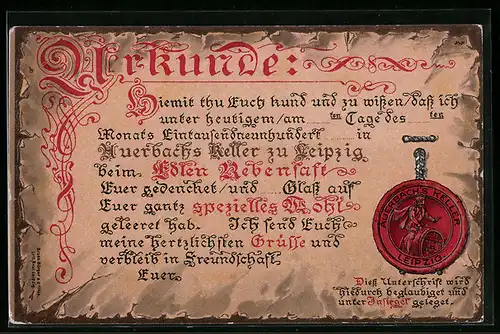 Urkunde:
Hiemit thu Euch kund und zu wißen/daß ich
unter heutigem/am ten Tage des ten
Monats Eintausendneunhundert in
Auerbachs Keller zu Leipzig
beim Edlen Rebensaft
Euer gedenchet/und Glaß auf
Euer gantz spezielles Wohl
geleeret hab. Ich send Euch
meine hertzlichsten Grüße und
verbleib in Freundschaft
Euer
AUERBACHS KELLER
LEIPZIG
Dieß Unterschrift wird
hiedurch beglaubiget und
unter Insiegel geleget.